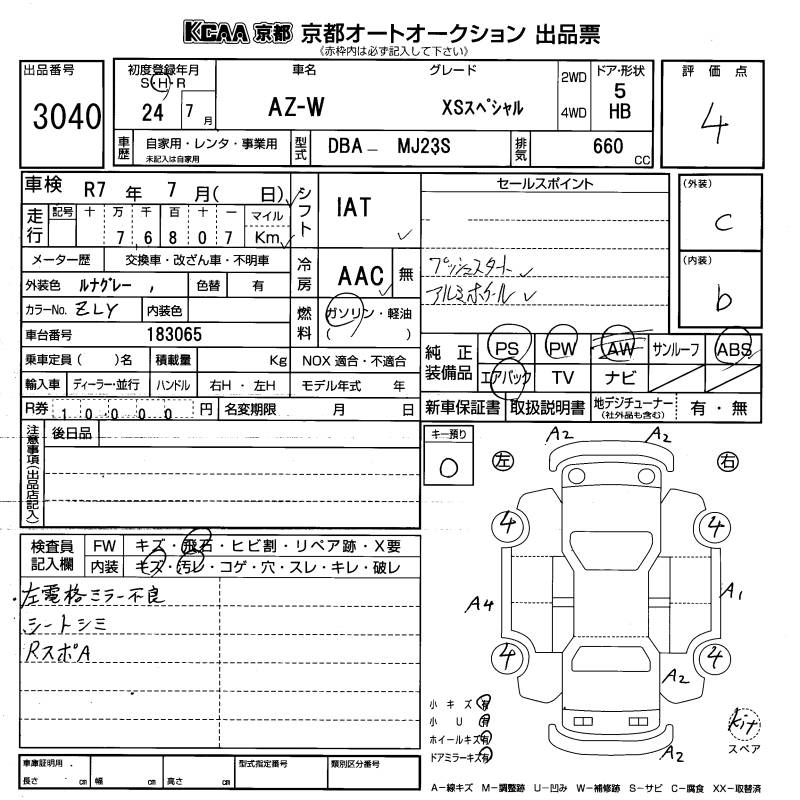 KCAA 京都 京都オートオークション 出品票
《赤枠内は必ず記入して下さい》
出品番号
3040
初度登録年月
S・H・R
24 7 月
車名
AZ-W
グレード
XSスペシャル
2WD
4WD
ドア・形状
5
HB
評価点
4
車歴
自家用・レンタ・事業用
未記入は自家用
型式
DBA－ MJ23S
排気
660 CC
車検 R7 年 7 月( 日)
走行
記号 十 万 千 百 十 一 マイル
7 6 8 0 7 Km
メーター歴 交換車・改ざん車・不明車
外装色 ルナグレー , 色替 有
カラーNo. ZLY 内装色
車台番号 183065
乗車定員( )名 積載量 Kg
輸入車 ディーラー・並行 ハンドル 右H・左H
R券 10000 円 名変期限 月 日
シフト IAT
冷房 AAC 無
燃料 ガソリン・軽油
( )
NOX 適合・不適合
モデル年式 年
セールスポイント
プッシュスタート
アルミホイール
(外装)
C
(内装)
b
純正装備品
PS PW AW サンルーフ ABS
エアバック TV ナビ
新車保証書 取扱説明書 地デジチューナー(社外品も含む) 有・無
注意事項(出品店記入)
後日品
キー預り
0
検査員記入欄
FW キズ・飛石・ヒビ割・リペア跡・X要
内装 キズ・汚レ・コゲ・穴・スレ・キレ・破レ
・左電格ミラー不良
シートシミ
RスポA
左
右
A2 A2
4 4
A4 A1
4 4
A2
A2
小キズ 有
小U 有
ホイールキズ 有
ドアミラーキズ 有
kit
スペア
車庫証明用
長さ cm 幅 cm 高さ cm
型式指定番号
類別区分番号
A－線キズ M－調整跡 U－凹み W－補修跡 S－サビ C－腐食 XX－取替済